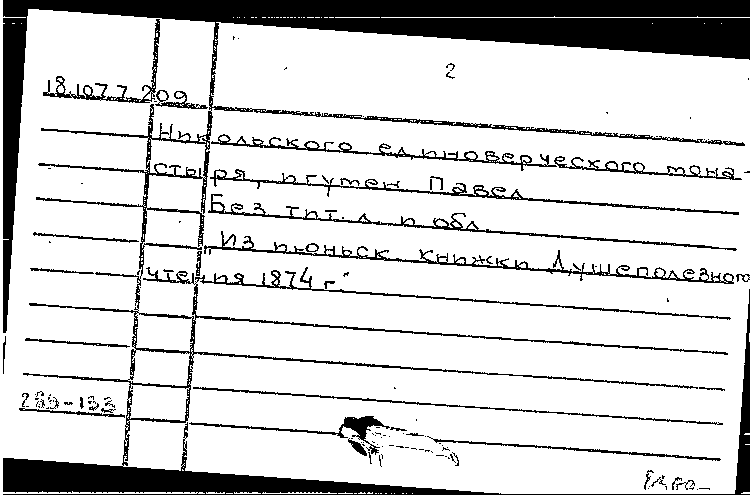 2
18.107.7.209
Никольского единоверческого мона-
стыря, игумен Павел
Без тит. л. и обл.
„Из июньск. книжки Душеполезного
чтения 1874 г."
289-133